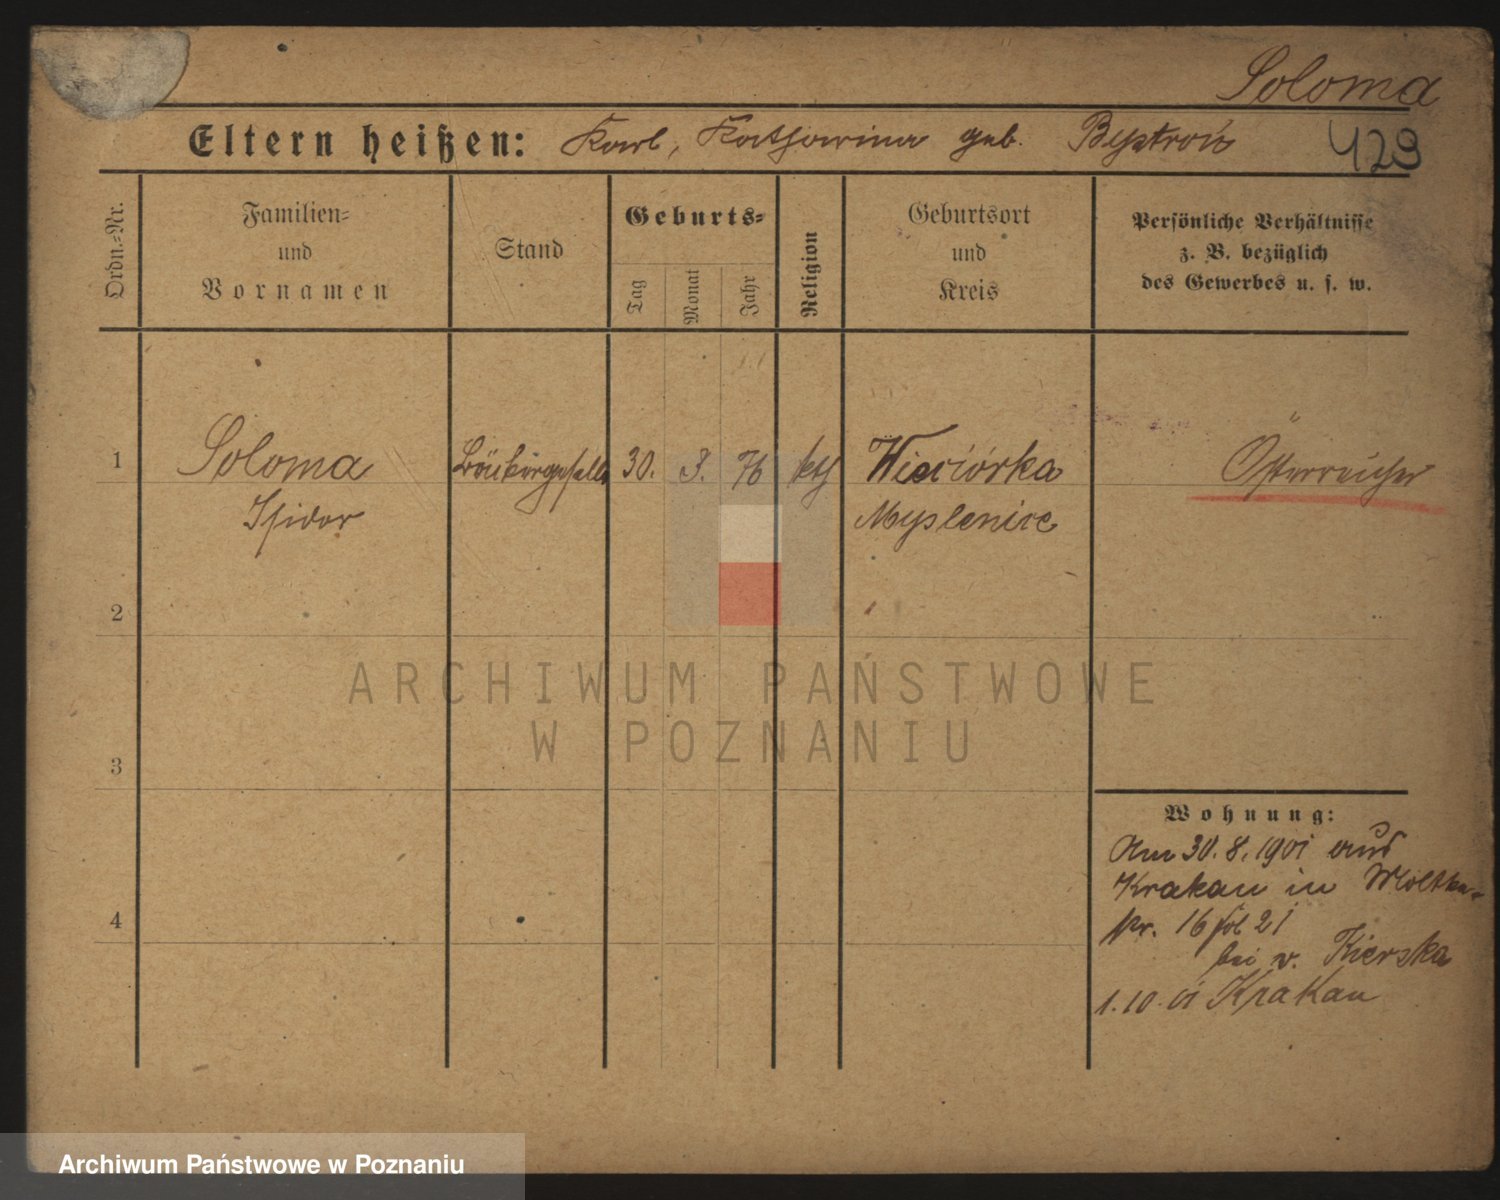 Soloma
Eltern heißen: Karl, Katharina geb. Bystroń
429
Ordn.=Nr.
Familien=
und
Vornamen
Stand
Geburts=
Tag
Monat
Jahr
Religion
Geburtsort
und
Kreis
Persönliche Verhältnisse
z. B. bezüglich
des Gewerbes u. s. w.
1 Soloma 30. 3. 76 kth Wieciórka Österreicher
Isidor Myslenice
2
3
4
Wohnung:
Am 30. 8. 1901 aus
Krakau in Moltke-
Nr. 16 fol 21
bei v. Kierska
1. 10. 01 Krakau
ARCHIWUM PAŃSTWOWE
W POZNANIU
Archiwum Państwowe w Poznaniu